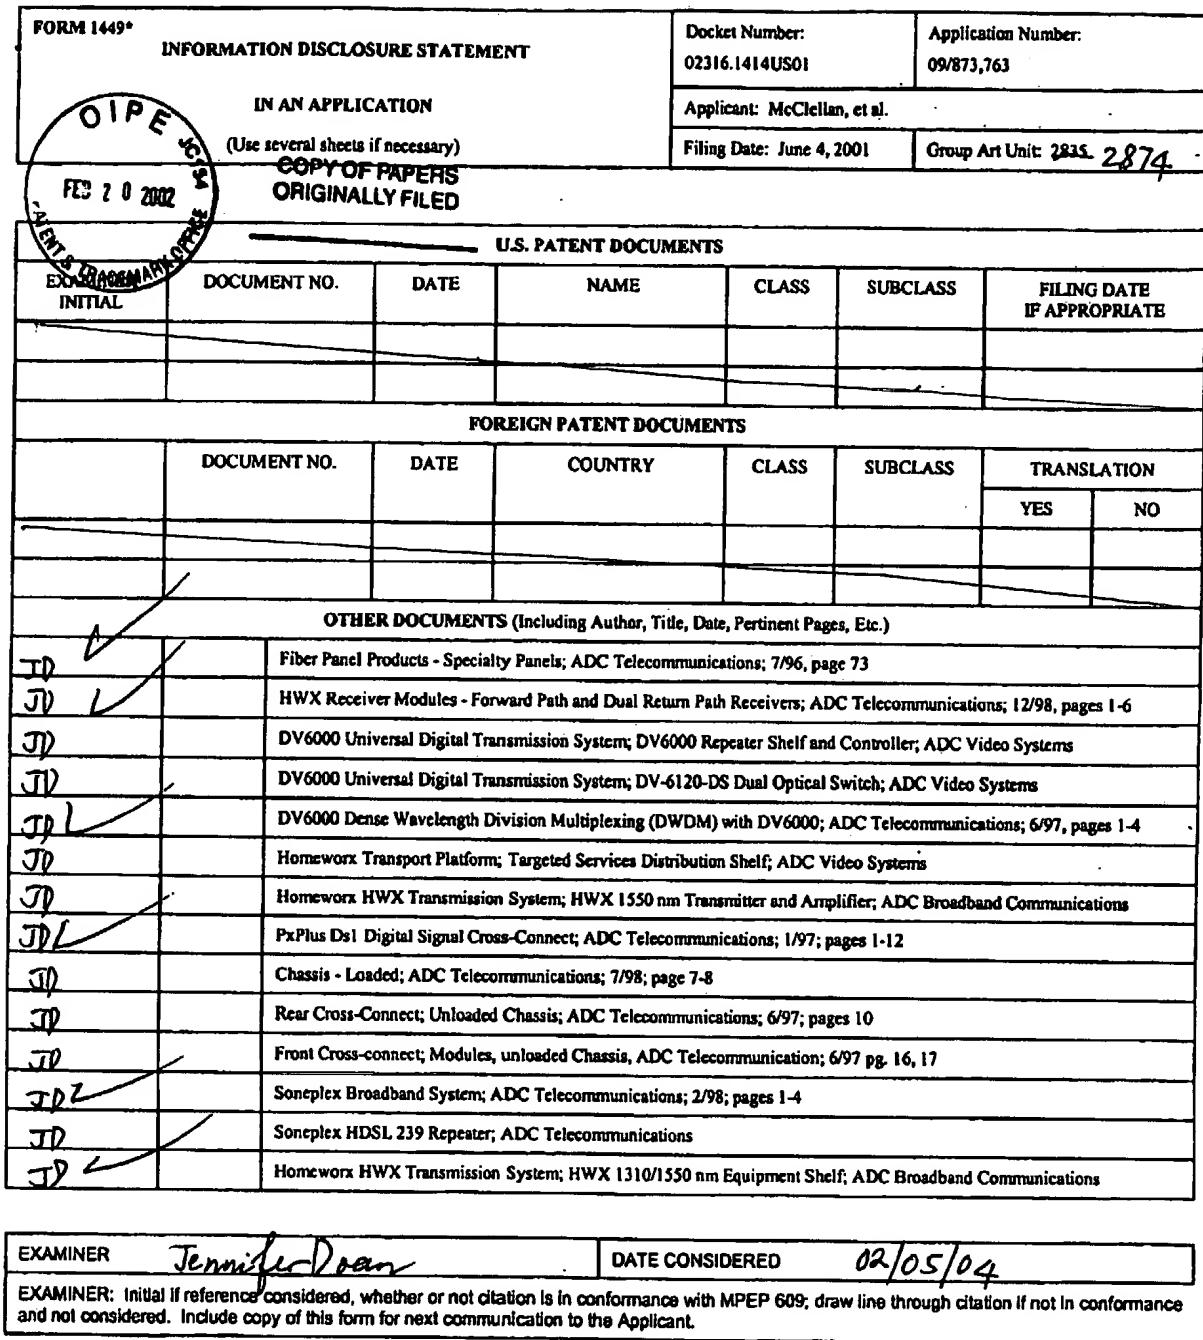 FORM 1449*
INFORMATION DISCLOSURE STATEMENT
IN AN APPLICATION
(Use several sheets if necessary)
Docket Number:
02316.1414US01
Application Number:
09/873,763
Applicant: McClellan, et al.
Filing Date: June 4, 2001
Group Art Unit: 2835 2874
OIPE JC154
FEB 20 2002
PATENT & TRADEMARK OFFICE
COPY OF PAPERS
ORIGINALLY FILED
U.S. PATENT DOCUMENTS
EXAMINER
INITIAL
DOCUMENT NO.
DATE
NAME
CLASS
SUBCLASS
FILING DATE
IF APPROPRIATE
FOREIGN PATENT DOCUMENTS
DOCUMENT NO.
DATE
COUNTRY
CLASS
SUBCLASS
TRANSLATION
YES
NO
OTHER DOCUMENTS (Including Author, Title, Date, Pertinent Pages, Etc.)
JD Fiber Panel Products - Specialty Panels; ADC Telecommunications; 7/96, page 73
JD HWX Receiver Modules - Forward Path and Dual Return Path Receivers; ADC Telecommunications; 12/98, pages 1-6
JD DV6000 Universal Digital Transmission System; DV6000 Repeater Shelf and Controller; ADC Video Systems
JD DV6000 Universal Digital Transmission System; DV-6120-DS Dual Optical Switch; ADC Video Systems
JD DV6000 Dense Wavelength Division Multiplexing (DWDM) with DV6000; ADC Telecommunications; 6/97, pages 1-4
JD Homeworx Transport Platform; Targeted Services Distribution Shelf; ADC Video Systems
JD Homeworx HWX Transmission System; HWX 1550 nm Transmitter and Amplifier; ADC Broadband Communications
JD PxPlus Ds1 Digital Signal Cross-Connect; ADC Telecommunications; 1/97; pages 1-12
JD Chassis - Loaded; ADC Telecommunications; 7/98; page 7-8
JD Rear Cross-Connect; Unloaded Chassis; ADC Telecommunications; 6/97; pages 10
JD Front Cross-connect; Modules, unloaded Chassis, ADC Telecommunication; 6/97 pg. 16, 17
JD Soneplex Broadband System; ADC Telecommunications; 2/98; pages 1-4
JD Soneplex HDSL 239 Repeater; ADC Telecommunications
JD Homeworx HWX Transmission System; HWX 1310/1550 nm Equipment Shelf; ADC Broadband Communications
EXAMINER Jennifer Doan
DATE CONSIDERED 02/05/04
EXAMINER: Initial if reference considered, whether or not citation is in conformance with MPEP 609; draw line through citation if not in conformance
and not considered. Include copy of this form for next communication to the Applicant.